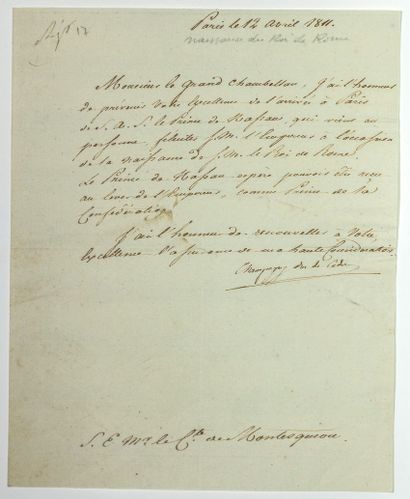 Paris le 12 avril 1811.
naissance du Roi de Rome
Monsieur le Grand Chambellan, j'ai l'honneur
de prévenir Votre Excellence de l'arrivée à Paris
de S. A. S. le Prince de Nassau, qui vient en
personne féliciter S.M. l'Empereur à l'occasion
de la naissance de S.M. le Roi de Rome.
Le Prince de Nassau espère pouvoir être reçu
au lever de l'Empereur, comme Prince de la
Confédération.
J'ai l'honneur de renouveller à Votre
Excellence l'assurance de ma haute considération.
Champagny duc de Cadore
S. E. Mr. le Cte. de Montesquiou.